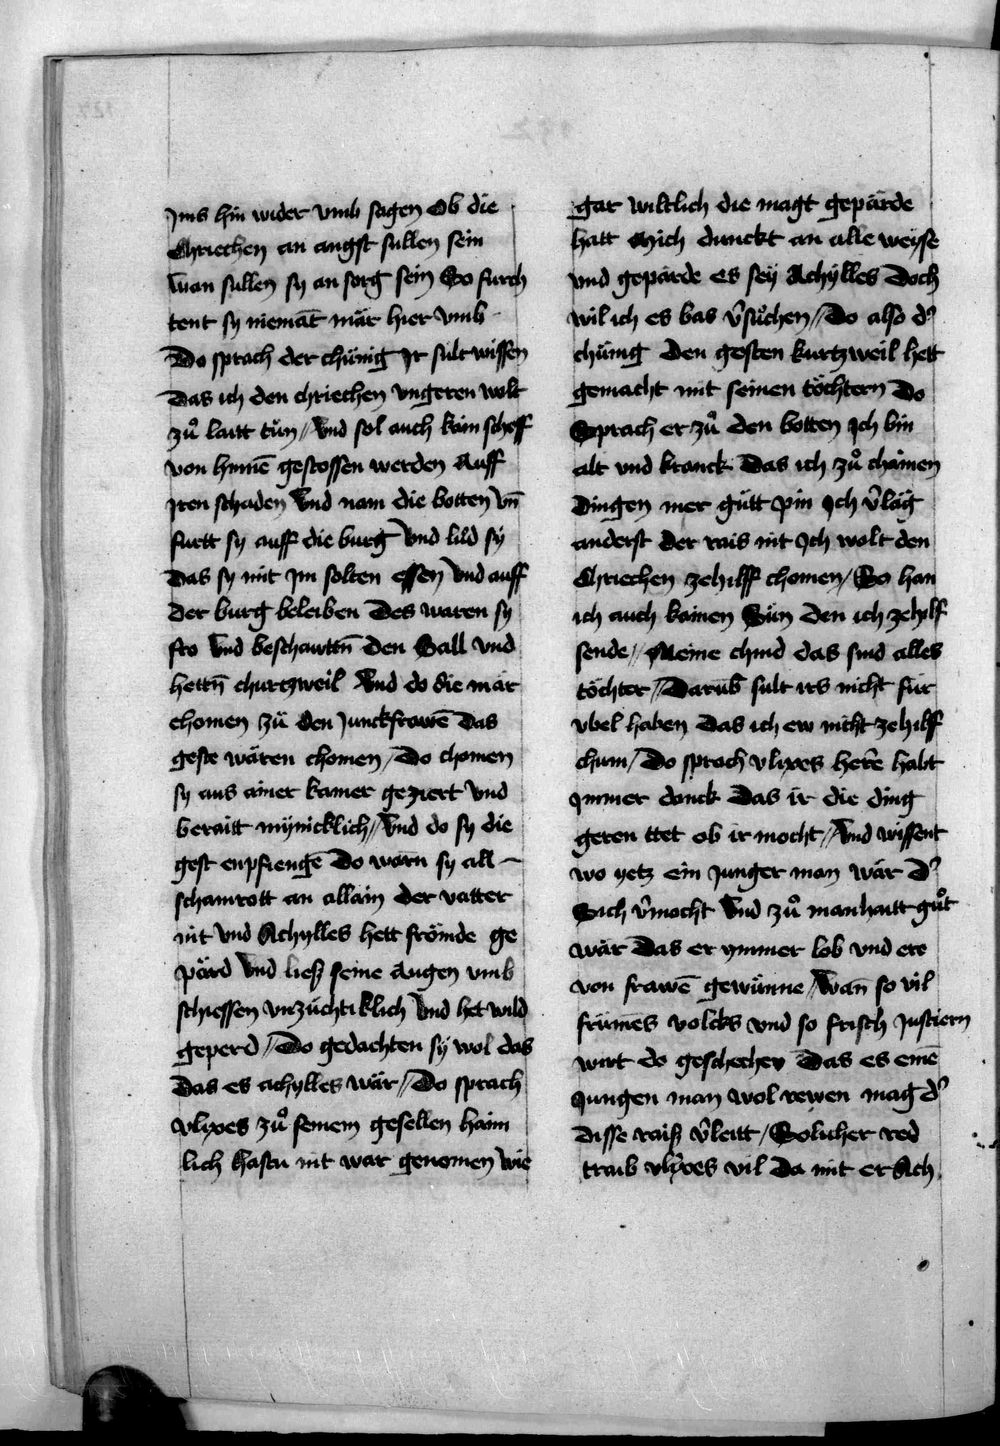 Jms hin wider vmb sagen Ob die
Chriechen an angst sullen sein
wan sullen sy an sorg sein So furch
tent sy niemāt mär hier vmb
Do sprach der chünig Jr sült wissen
Das ich den chriechen vngeren wolt
zů laitt tůn // Vnd sol auch kain scheff
von hinnē gestossen werden Auff
Jren schaden Vnd nam die botten vn̄
fürtt sy auff die burg Vnd lüd sy
Das sy mit Jm solten essen Vnd auff
der burg beleiben Des waren sy
fro Vnd beschawttn̄ den Sall vnd
hettn̄ churtzweil Vnd do die mär
chomen zů den Junckfrawē Das
geste wären chomen / Do chomen
sy aus ainer kamer geziert vnd
beraitt mynicklich // Vnd do sy die
gest enpfiengē Do warn sy all
schamrott an allain der vatter
nit vnd Achylles hett frömde ge
pärd Vnd ließ seine augen vmb
schiessen vnzüchtiklich Vnd het wild
geperd // Do gedachten sy wol das
Das es achylles wär // Do sprach
vlixes zů seinem gesellen haim
lich Hastu nit war genomen wie
gar wiltlich die magt gepärde
hatt Mich dunckt an alle weyse
vnd gepärde es sey Achylles Doch
wil ich es bas v̄sůchen // Do also d'
chünig den gesten kurtzweil hett
gemacht mit seinen töchtern Do
Sprach er zů den botten Ich bin
alt vnd kranck Das ich zů chainen
Dingen mer gütt pin Ich v̄läg
anderst der rais nit Ich wolt den
Chriechen zehilff chomen / So han
ich auch kainen Sün den ich zehilf
sende // Meine chind das sind alles
töchter // Darūb sult irs nicht für
vbel haben Das ich ew nicht zehilff
chum / Do sprach vlixes herre habt
Jmmer danck Das ir die ding
geren ttet ob ir mocht // Vnd wissent
wo yetz ein Junger man wär d'
Sich v̄mocht Vnd zů manhait gůt
wär Das er ymmer lob vnd ere
von frawē gewünne // Wan̄ so vil
frümes volcks vnd so frisch Justiern
wirt do geschechen Das es einē
Jungen man wol rewen mag d'
disse raiß v̄leitt / Solicher red
traib vlixes vil Da mit er Ach